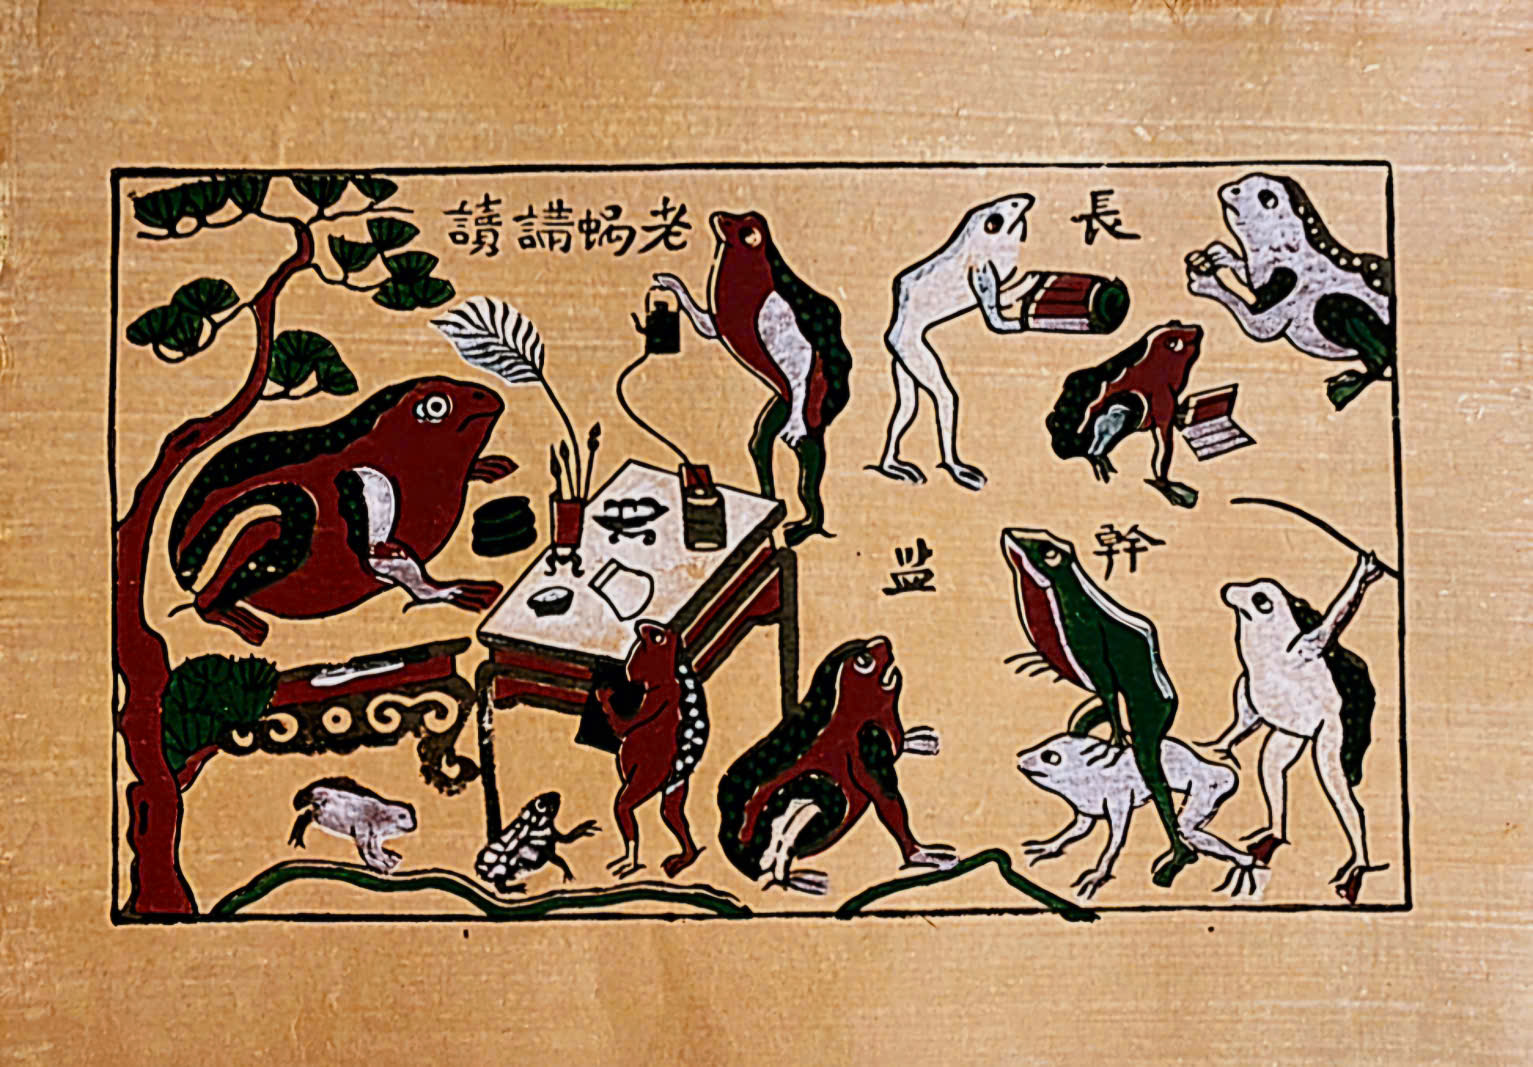 老蝸講讀
長
幹
监